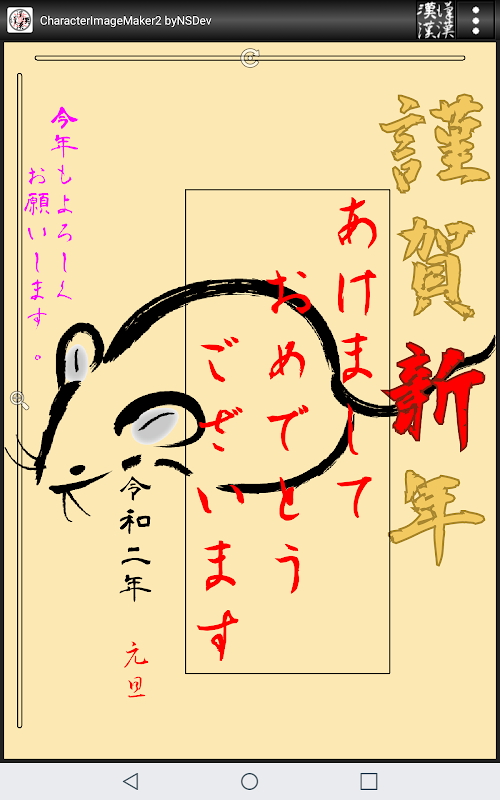 CharacterImageMaker2 byNSDev
漢漢
漢漢
謹賀新年
あけまして
おめでとう
ございます
今年もよろしく
お願いします。
令和二年
元旦